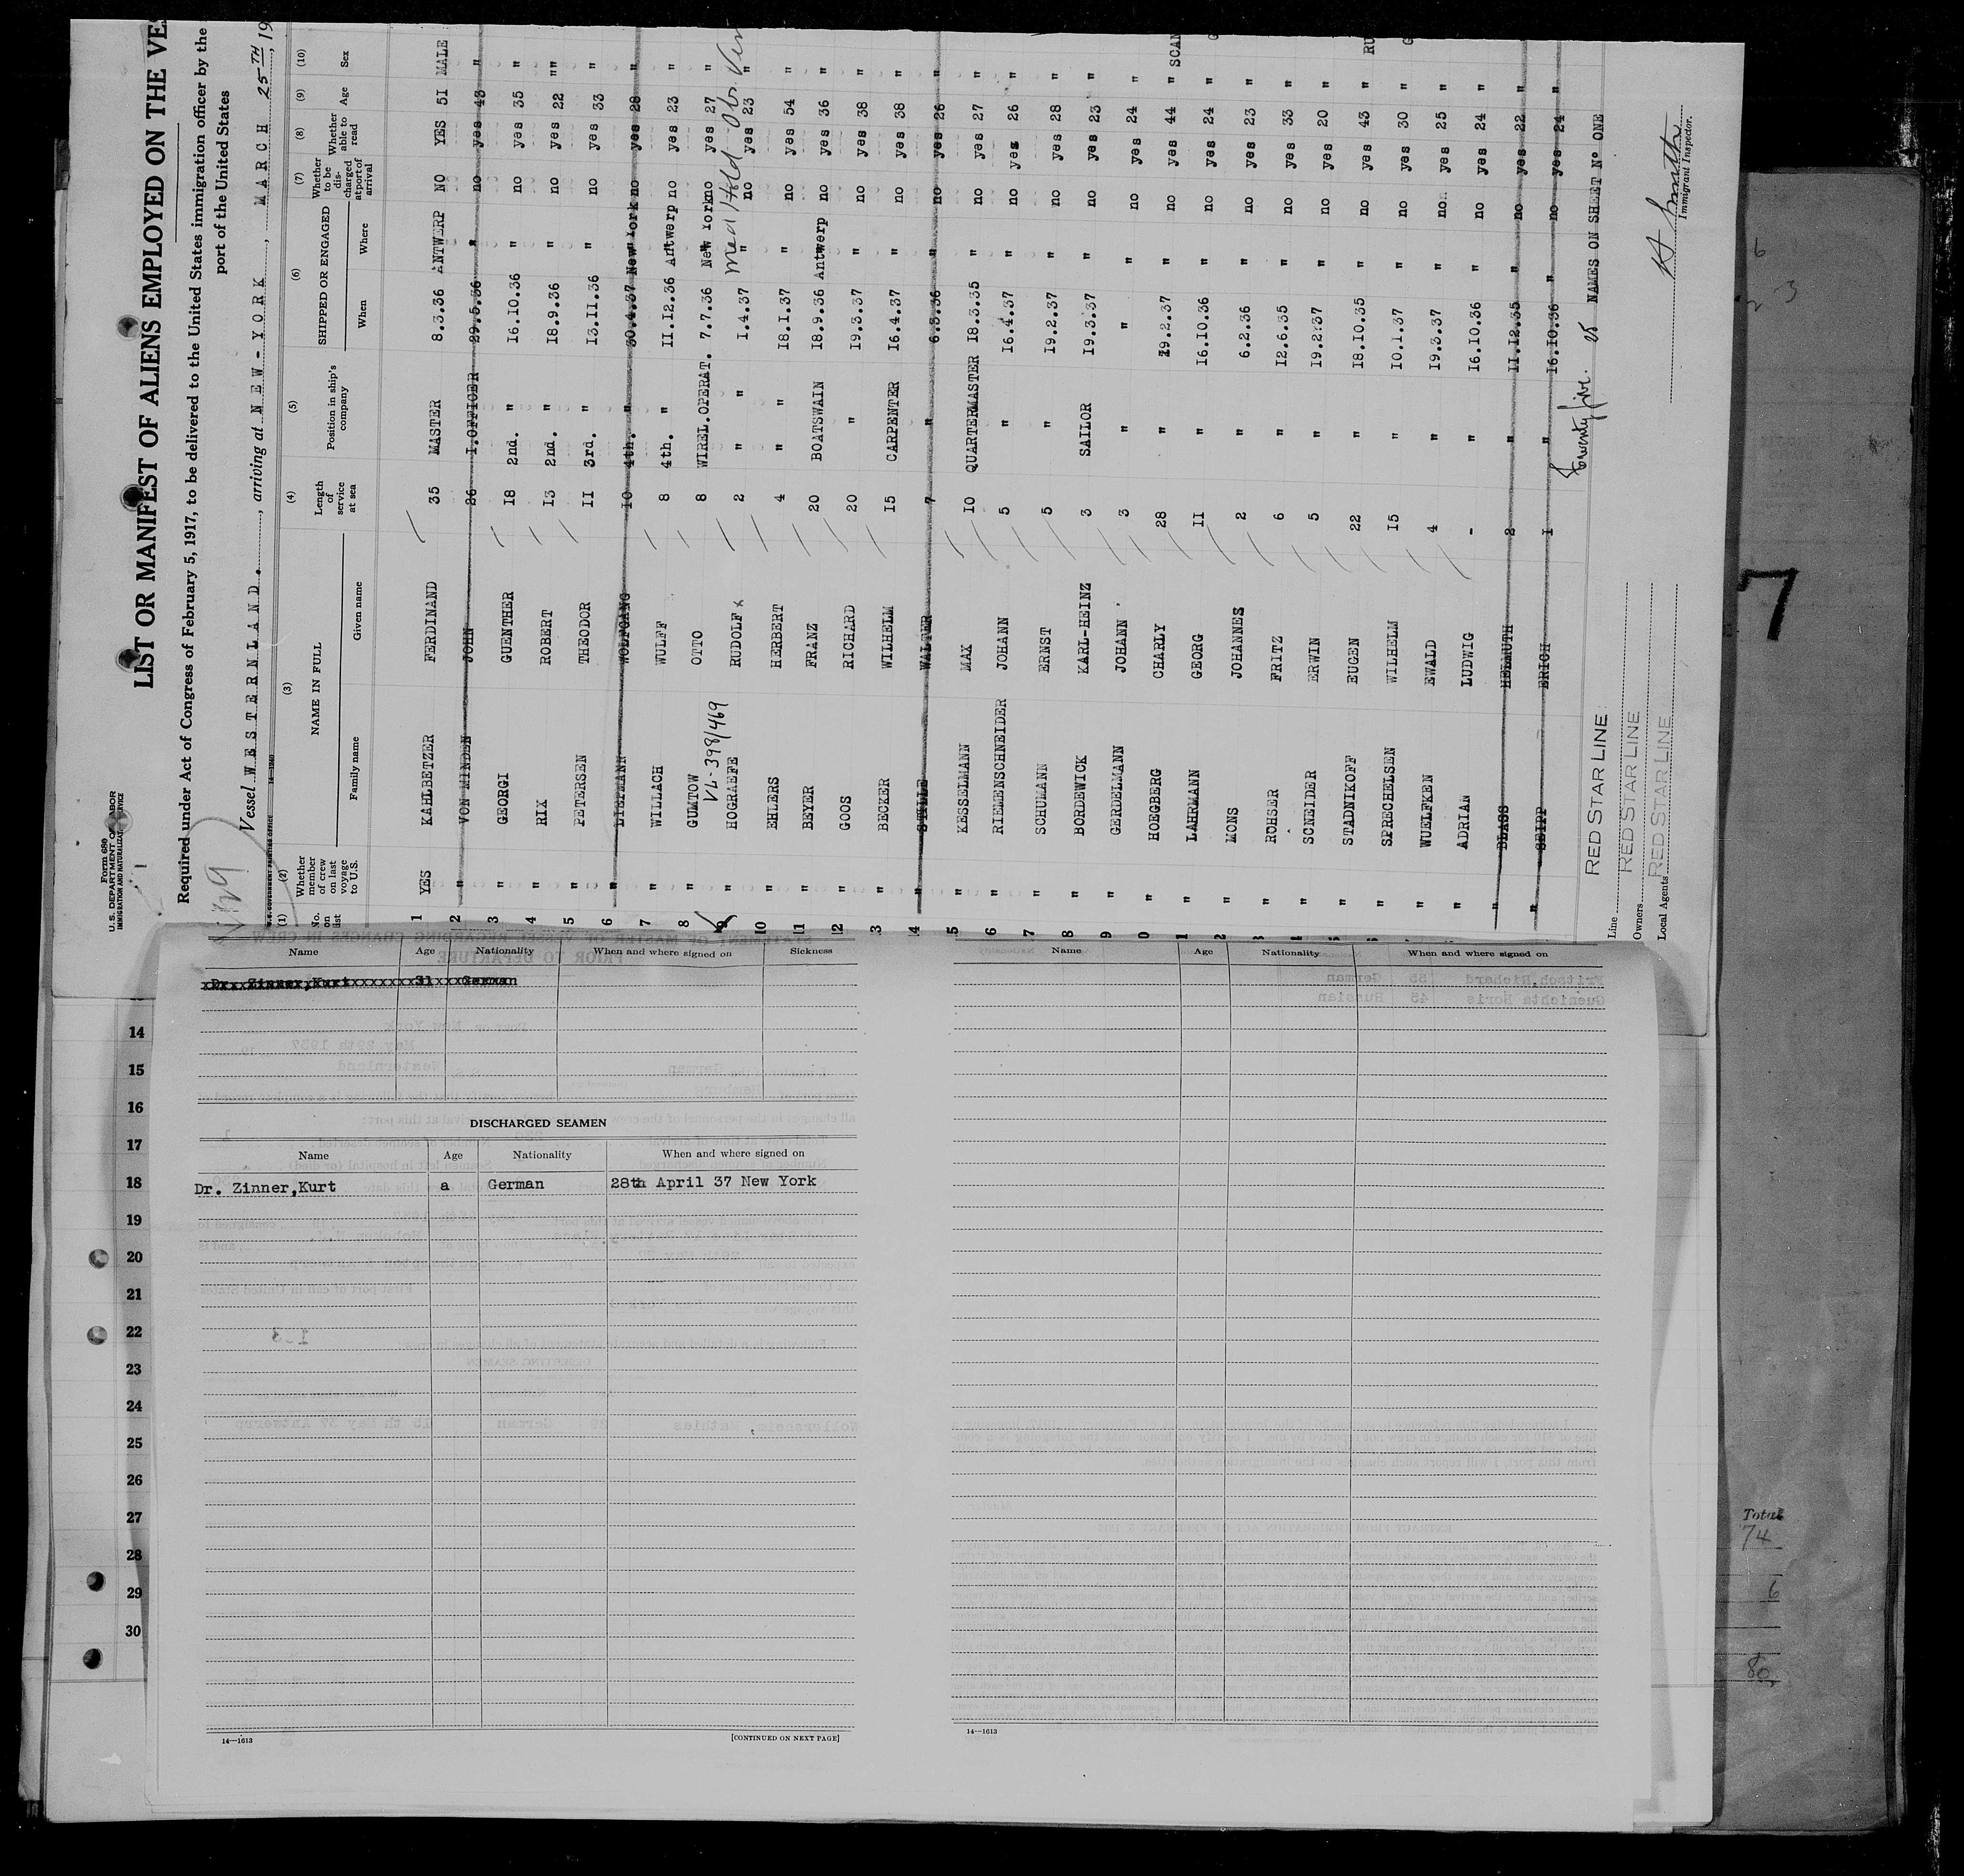 Form 680
U.S. DEPARTMENT OF LABOR
IMMIGRATION AND NATURALIZATION SERVICE
LIST OR MANIFEST OF ALIENS EMPLOYED ON THE VES
Required under Act of Congress of February 5, 1917, to be delivered to the United States immigration officer by the
port of the United States
Vessel WESTERNLAND., arriving at NEW-YORK, MARCH 25TH, 19
(1) No. on list (2) Whether member of crew on last voyage to U.S. (3) NAME IN FULL Family name Given name (4) Length of service at sea (5) Position in ship's company (6) SHIPPED OR ENGAGED When Where (7) Whether to be discharged at port of arrival (8) Whether able to read (9) Age (10) Sex
1 YES KAHLBETZER FERDINAND 35 MASTER 8.3.36 ANTWERP NO YES 51 MALE
2 " VON MINDEN JOHN 26 I.OFFICER 29.5.36 " no yes 43 "
3 " GEORGI GUENTHER 18 2nd. " 16.10.36 " no yes 35 "
4 " RIX ROBERT 13 2nd. " 18.9.36 " no yes 22 ""
5 " PETERSEN THEODOR 11 3rd. " 13.11.36 " no yes 33 "
6 " LIEPMANN WOLFGANG 10 4th. " 30.4.37 New York no yes 28 "
7 " WILLACH WULFF 8 4th. " 11.12.36 Antwerp no yes 23 "
8 " GUMTOW OTTO 8 WIREL.OPERAT. 7.7.36 New York no yes 27 "
VL-398/469 Med Hold Obs. Ven
9 " HOGRAEFE RUDOLF x 2 " " 1.4.37 " no yes 23 "
10 " EHLERS HERBERT 4 " " 18.1.37 " no yes 54 "
11 " BEYER FRANZ 20 BOATSWAIN 18.9.36 Antwerp no yes 36 "
12 " GOOS RICHARD 20 " 19.3.37 " no yes 38 "
3 " BECKER WILHELM 15 CARPENTER 16.4.37 " no yes 38 "
4 " STILLE WALTER 7 " 6.3.36 " no yes 26 "
5 " KESSELMANN MAX 10 QUARTERMASTER 18.3.35 " no yes 27 "
6 " RIEMENSCHNEIDER JOHANN 5 " 16.4.37 " no yes 26 "
7 " SCHUMANN ERNST 5 " 19.2.37 " no yes 28 "
8 " BORDEWICK KARL-HEINZ 3 SAILOR 19.3.37 " no yes 23 "
9 " GERDELMANN JOHANN 3 " " " no yes 24 "
0 " HOEGBERG CHARLY 28 " 19.2.37 " no yes 44 " SCAN
1 " LAHRMANN GEORG 11 " 16.10.36 " no yes 24 " G
2 " MONS JOHANNES 2 " 6.2.36 " no yes 23 "
" ROHSER FRITZ 6 " 12.6.35 " no yes 33 "
" SCNEIDER ERWIN 5 " 19.2.37 " no yes 20 "
" STADNIKOFF EUGEN 22 " 18.10.35 " no yes 43 " RU
" SPRECHELSEN WILHELM 15 " 10.1.37 " no yes 30 " G
" WUELFKEN EWALD 4 " 19.3.37 " no yes 25 "
" ADRIAN LUDWIG - " 16.10.36 " no yes 24 "
" BLASS HELMUTH 2 " 11.12.35 " no yes 22 "
" SEIPP ERICH 1 " 16.10.36 " no yes 24 "
twenty five. NAMES ON SHEET No ONE
Line RED STAR LINE
Owners RED STAR LINE
Local Agents RED STAR LINE
Immigrant Inspector.
Name Age Nationality When and where signed on Sickness
Dr. Zinner,Kurt 31 German
DISCHARGED SEAMEN
Name Age Nationality When and where signed on
Dr. Zinner,Kurt a German 28th April 37 New York
14—1613 [CONTINUED ON NEXT PAGE]
Name Age Nationality When and where signed on
14—1613
14
15
16
17
18
19
20
21
22
23
24
25
26
27
28
29
30
7
Total
74
6
80